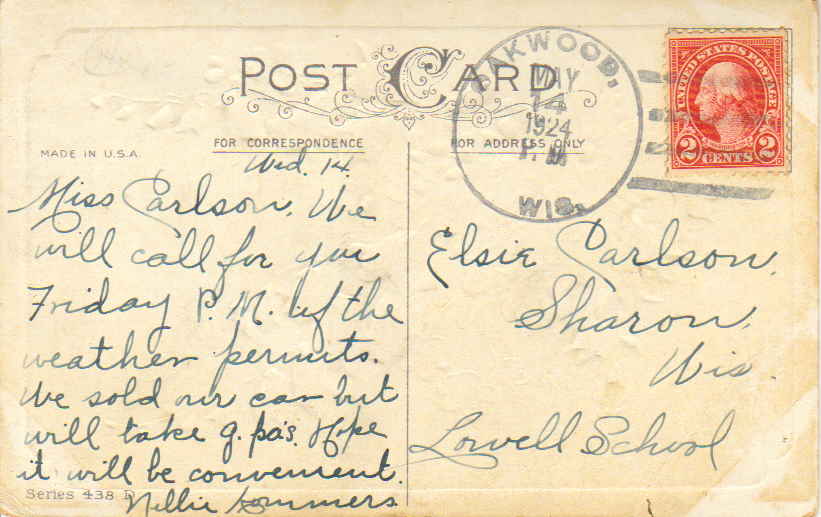 POST CARD
FOR CORRESPONDENCE
FOR ADDRESS ONLY
MADE IN U.S.A.
OAKWOOD,
MAY
14
1924
WIS.
UNITED STATES POSTAGE
2 CENTS 2
Wed. 14.
Miss Carlson, We
will call for you
Friday P.M. if the
weather permits.
We sold our car but
will take g. pa's. Hope
it will be convenient.
Nellie Sommers
Series 438 D
Elsie Carlson.
Sharon,
Wis.
Lowell School